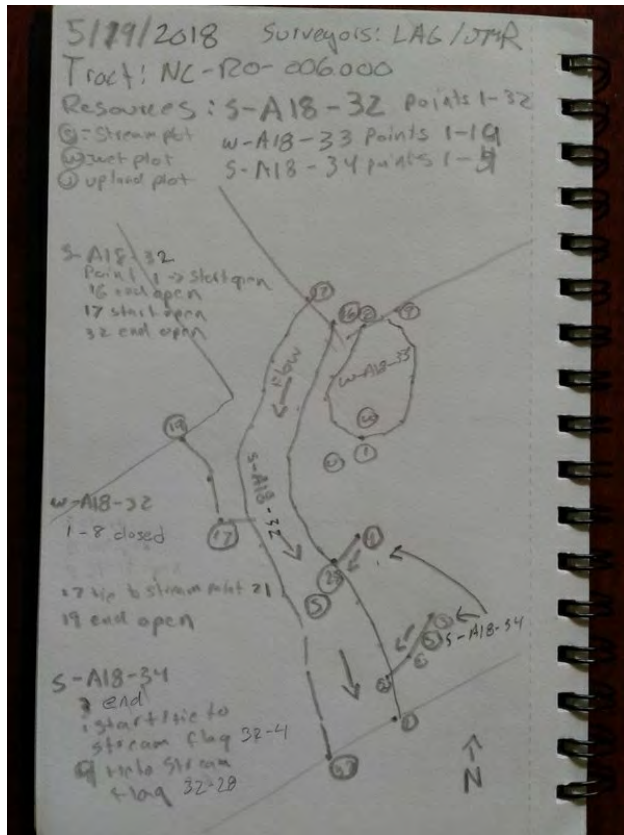 5/19/2018 Surveyors: LAG/JMR
Tract: NC-RO-006.000
Resources: S-A18-32 points 1-32
S=Stream plot W-A18-33 points 1-19
W wet plot S-A18-34 points 1-9
U upland plot
S-A18-32
Point 1 -> start open
16 end open
17 start open
32 end open
17
16
9
Flow
W-A18-33
W
1
U
19
S-A18-32
W-A18-32
1-8 closed
17
17 tie to stream point 21
19 end open
S
S-A18-34
1
S-A18-34
end
start/tie to
stream flag 32-4
tie to stream
flag 32-28
N